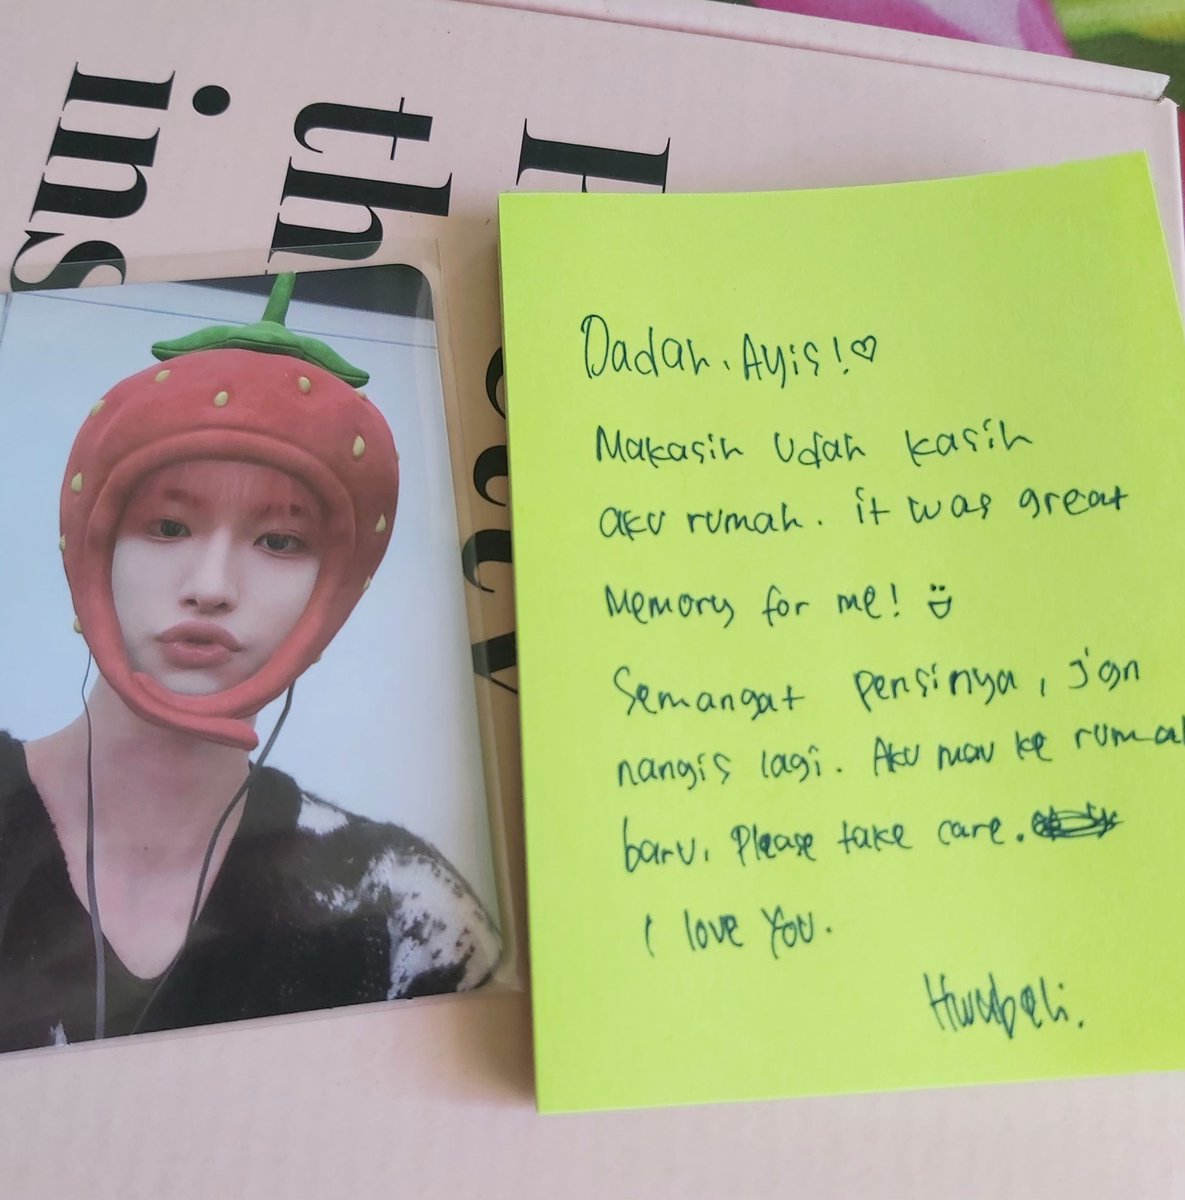 Dadah, Ayis!♡
Makasih udah kasih
aku rumah. it was great
Memory for me!
Semangat pensinya, j'gn
nangis lagi. Aku mau ke rumah
baru. Please take care.
I love you.
in
ins
th